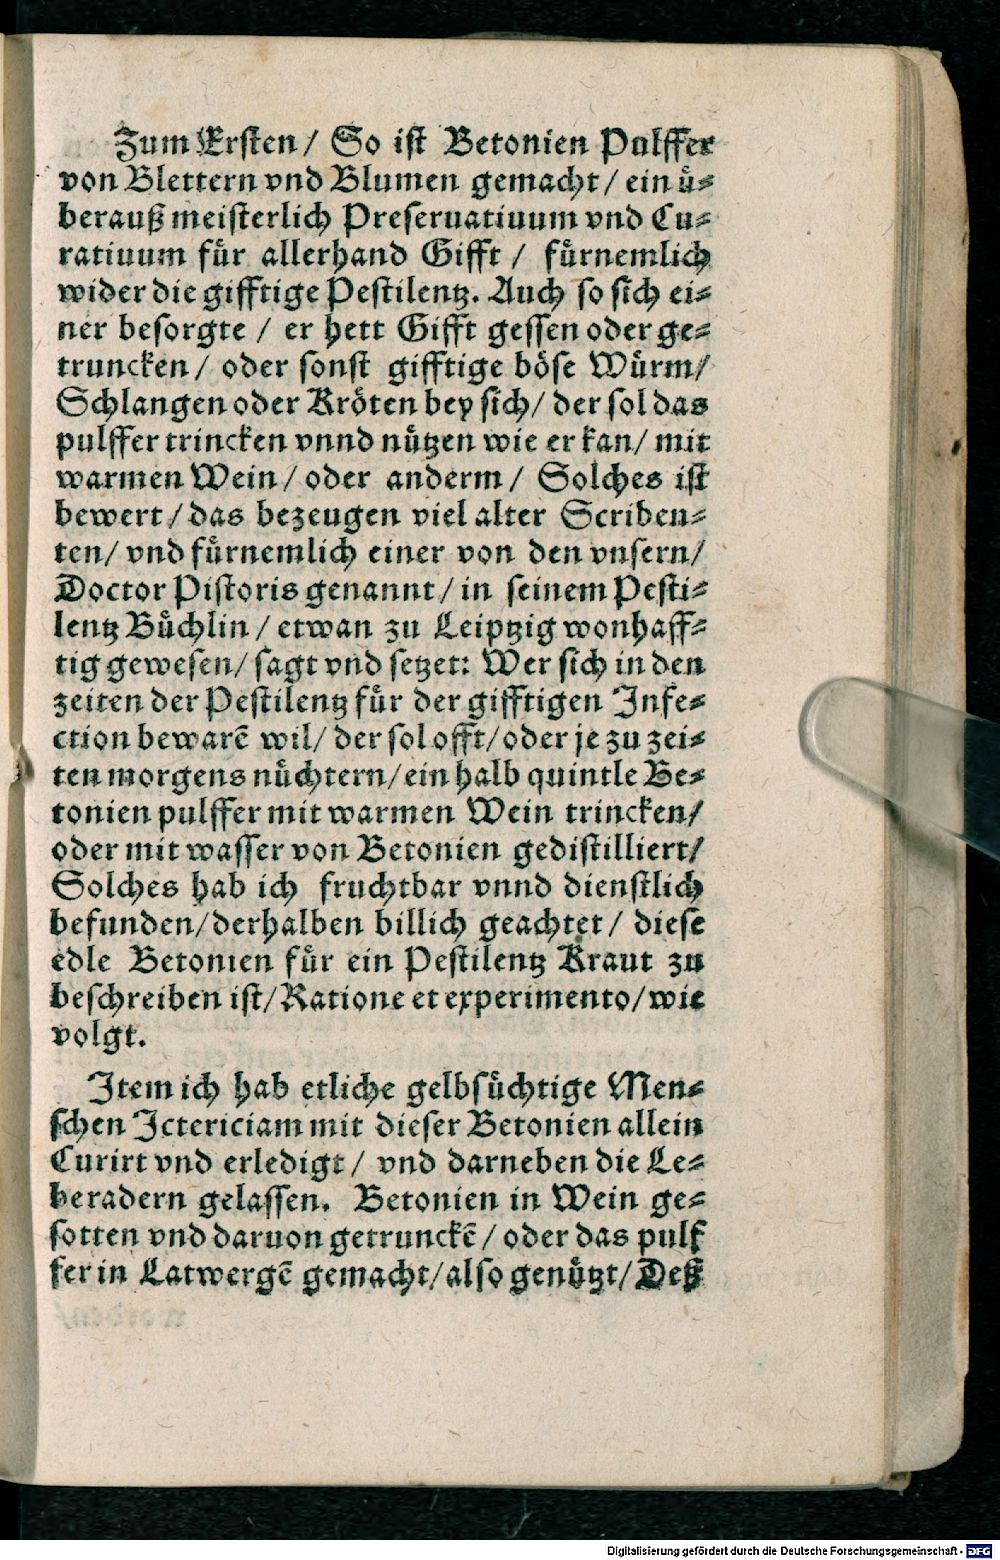 Zum Ersten/ So ist Betonien Pulffer
von Blettern vnd Blumen gemacht/ ein uͤ⸗
berauß meisterlich Preseruatiuum vnd Cu⸗
ratiuum fuͤr allerhand Gifft / fuͤrnemlich
wider die gifftige Pestilentz. Auch so sich ei⸗
ner besorgte / er hett Gifft gessen oder ge⸗
truncken/ oder sonst gifftige boͤse Wuͤrm/
Schlangen oder Kroͤten bey sich/ der sol das
pulffer trincken vnnd nuͤtzen wie er kan/ mit
warmen Wein/ oder anderm/ Solches ist
bewert/ das bezeugen viel alter Scriben⸗
ten/ vnd fuͤrnemlich einer von den vnsern/
Doctor Pistoris genannt/ in seinem Pesti⸗
lentz Buͤchlin/ etwan zu Leiptzig wonhaff⸗
tig gewesen/ sagt vnd setzet: Wer sich in den
zeiten der Pestilentz fuͤr der gifftigen Infe⸗
ction bewarē wil/ der sol offt/ oder je zu zei⸗
ten morgens nuͤchtern/ ein halb quintle Be⸗
tonien pulffer mit warmen Wein trincken/
oder mit wasser von Betonien gedistilliert/
Solches hab ich fruchtbar vnnd dienstlich
befunden/ derhalben billich geachtet/ diese
edle Betonien fuͤr ein Pestilentz Kraut zu
beschreiben ist/ Ratione et experimento/ wie
volgt.
Item ich hab etliche gelbsuͤchtige Men⸗
schen Ictericiam mit dieser Betonien allein
Curirt vnd erledigt/ vnd darneben die Le⸗
beradern gelassen. Betonien in Wein ge⸗
sotten vnd daruon getrunckē/ oder das pulf
fer in Latwergē gemacht/ also genuͤtzt/ Deß
Digitalisierung gefördert durch die Deutsche Forschungsgemeinschaft - DFG